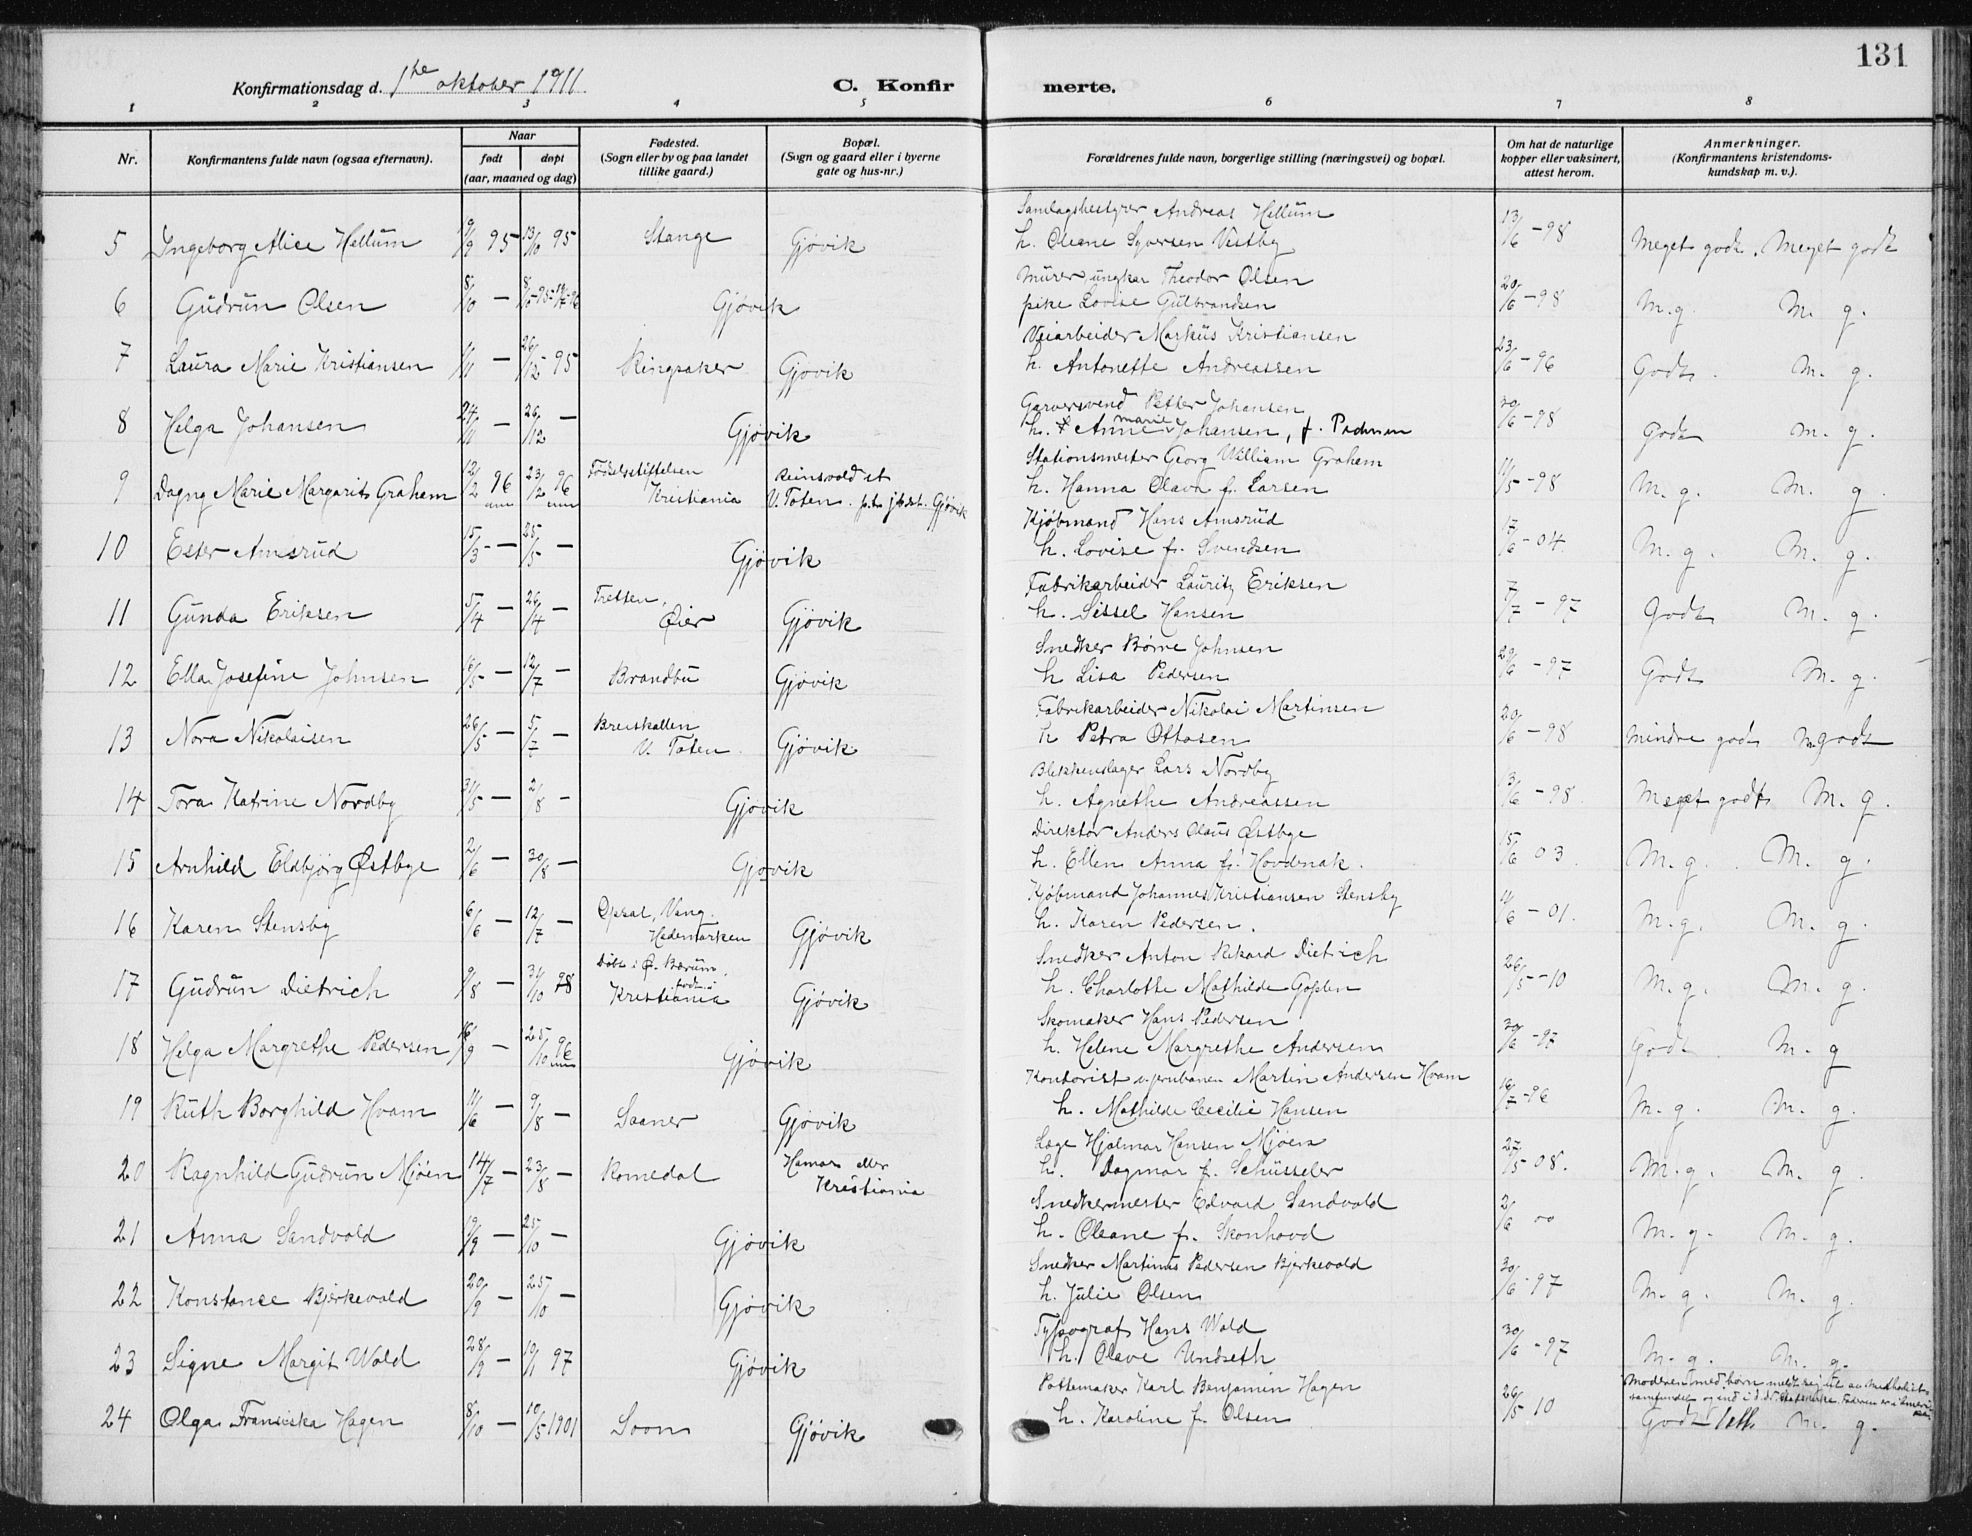 131
Konfirmationsdag d. 1ste oktober 1911.
C. Konfirmerte.
1 2 3 4 5 6 7 8
Nr. Konfirmantens fulde navn (ogsaa efternavn). Naar født døpt (aar, maaned og dag) Fødested. (Sogn eller by og paa landet tillike gaard.) Bopæl. (Sogn og gaard eller i byerne gate og hus-nr.) Forældrenes fulde navn, borgerlige stilling (næringsvei) og bopæl. Om hat de naturlige kopper eller vaksinert, attest herom. Anmerkninger. (Konfirmantens kristendoms-kundskap m. v.).
Samlagsbestyrer Andreas Hellum
5 Ingeborg Alice Hellum 95 13/10 95 Stange Gjøvik h. Oleane Syversen Vestby 13/6 - 98 Meget godt. Meget godt
Murer, ungkar Theodor Olsen
6 Gudrun Olsen 8/10 — Gjøvik pike Lovise Gulbrandsen 20/6 - 98 M. g. M. g.
Veiarbeider Markus Kristiansen
7 Laura Marie Kristiansen 1/11 — 26/12 95 Ringsaker Gjøvik h. Antonette Andreassen 23/6 - 96 Godt. M. g.
Garversvend Petter Johansen
8 Helga Johansen 24/11 — 26/12 — Gjøvik h. Anne Marie Johansen, f. 20/6 - 98 Godt M. g.
Fødselsstiftelsen Reinsvold st Stationsmester Georg William Graham
9 Dagny Marie Margarits Graham 12/2 96 23/2 96 Kristiania V. Toten. p.t. Gjøvik h. Hanna Olava f. Larsen 11/5 - 98 M. g. M. g.
Kjøbmand Hans Amsrud
10 Ester Amsrud 15/3 — 25/5 — Gjøvik h. Lovise f. Svendsen 17/6 - 04. M. g. M. g.
Tretten, Fabrikarbeider Lauritz Eriksen
11 Gunda Eriksen 5/4 — 26/4 — Øier Gjøvik h. Sissel Hansen 7/7 - 97 Godt M. g.
Snedker Børre Johnsen
12 Ella Josefine Johnsen 16/5 — 12/7 — Brandbu Gjøvik h Lisa Pedersen 29/6 - 97 Godt M. g.
Breiskallen Fabrikarbeider Nikolai Martinsen
13 Nora Nikolaisen 26/5 — 5/7 — V. Toten. Gjøvik h Petra Ottosen 20/6 - 98 mindre godt M. godt
Blikkenslager Lars Nordby
14 Tora Katrine Nordby 31/5 — 2/8 — Gjøvik h. Agnethe Andreassen 13/6 - 98. Meget godt M. g.
Direktør Anders Olaus Østbye
15 Arnhild Eldbjørg Østbye 2/6 — 30/8 — Gjøvik h. Ellen Anna f. Hovdenak. 15/6 03. M. g. M. g.
Opsal, Vang. Kjøbmand Johannes Kristiansen Stensby
16 Karen Stensby 6/6 — 12/7 — Hedemarken Gjøvik h. Karen Pedersen. 11/6 - 01. M. g. M. g.
Døbt i Ø. Bærum, Snedker Anton Rikard Dietrich
17 Gudrun Dietrich 9/8 — 31/10 98 født i Kristiania Gjøvik h. Charlotte Mathilde Goplen 26/5 - 10 M. g. M. g.
Skomaker Hans Pedersen
18 Helga Margrethe Pedersen 16/9 — 25/10 96 Gjøvik h. Helene Margrethe Andersen 30/6 - 97 Godt. M. g
Kontorist v. jernbanen Martin Andersen Hvam
19 Ruth Borghild Hvam 11/6 — 9/8 — Saaner Gjøvik h. Mathilde Cecilie Hansen 16/7 - 96 M. g. M. g.
Hamar eller Læge Hjalmar Hansen Mjøen
20 Ragnhild Gudrun Mjøen 14/7 — 23/8 — Romedal Kristiania h. Dagmar f. Schüsseler 27/5 - 08. M. g. M. g.
Snedkermester Edvard Sandvold
21 Anna Sandvold 19/9 — 25/10 — Gjøvik h. Oleane f. Skonhovd 2/6 00 M. g. M. g.
Snedker Martinus Pedersen Bjerkevold
22 Konstanse Bjerkevold 20/9 — 25/10 — Gjøvik h. Julie Olsen 30/6 - 97 M. g. M. g.
Typograf Hans Wold
23 Signe Margit Wold 28/9 — 10/1 97 Gjøvik h. Olave Undseth 30/6 - 97 M. g. M. g.
Pottemaker Karl Benjamin Hagen Moderen med børn meldt sig ut av Methodist-
samfundet og ind i d. n. statskirke. Faderen er i Amerika.
24 Olga Fransiska Hagen 8/10 — 10/5 1901 Soon Gjøvik h. Karoline f. Olsen 26/5 10 Godt M. g.